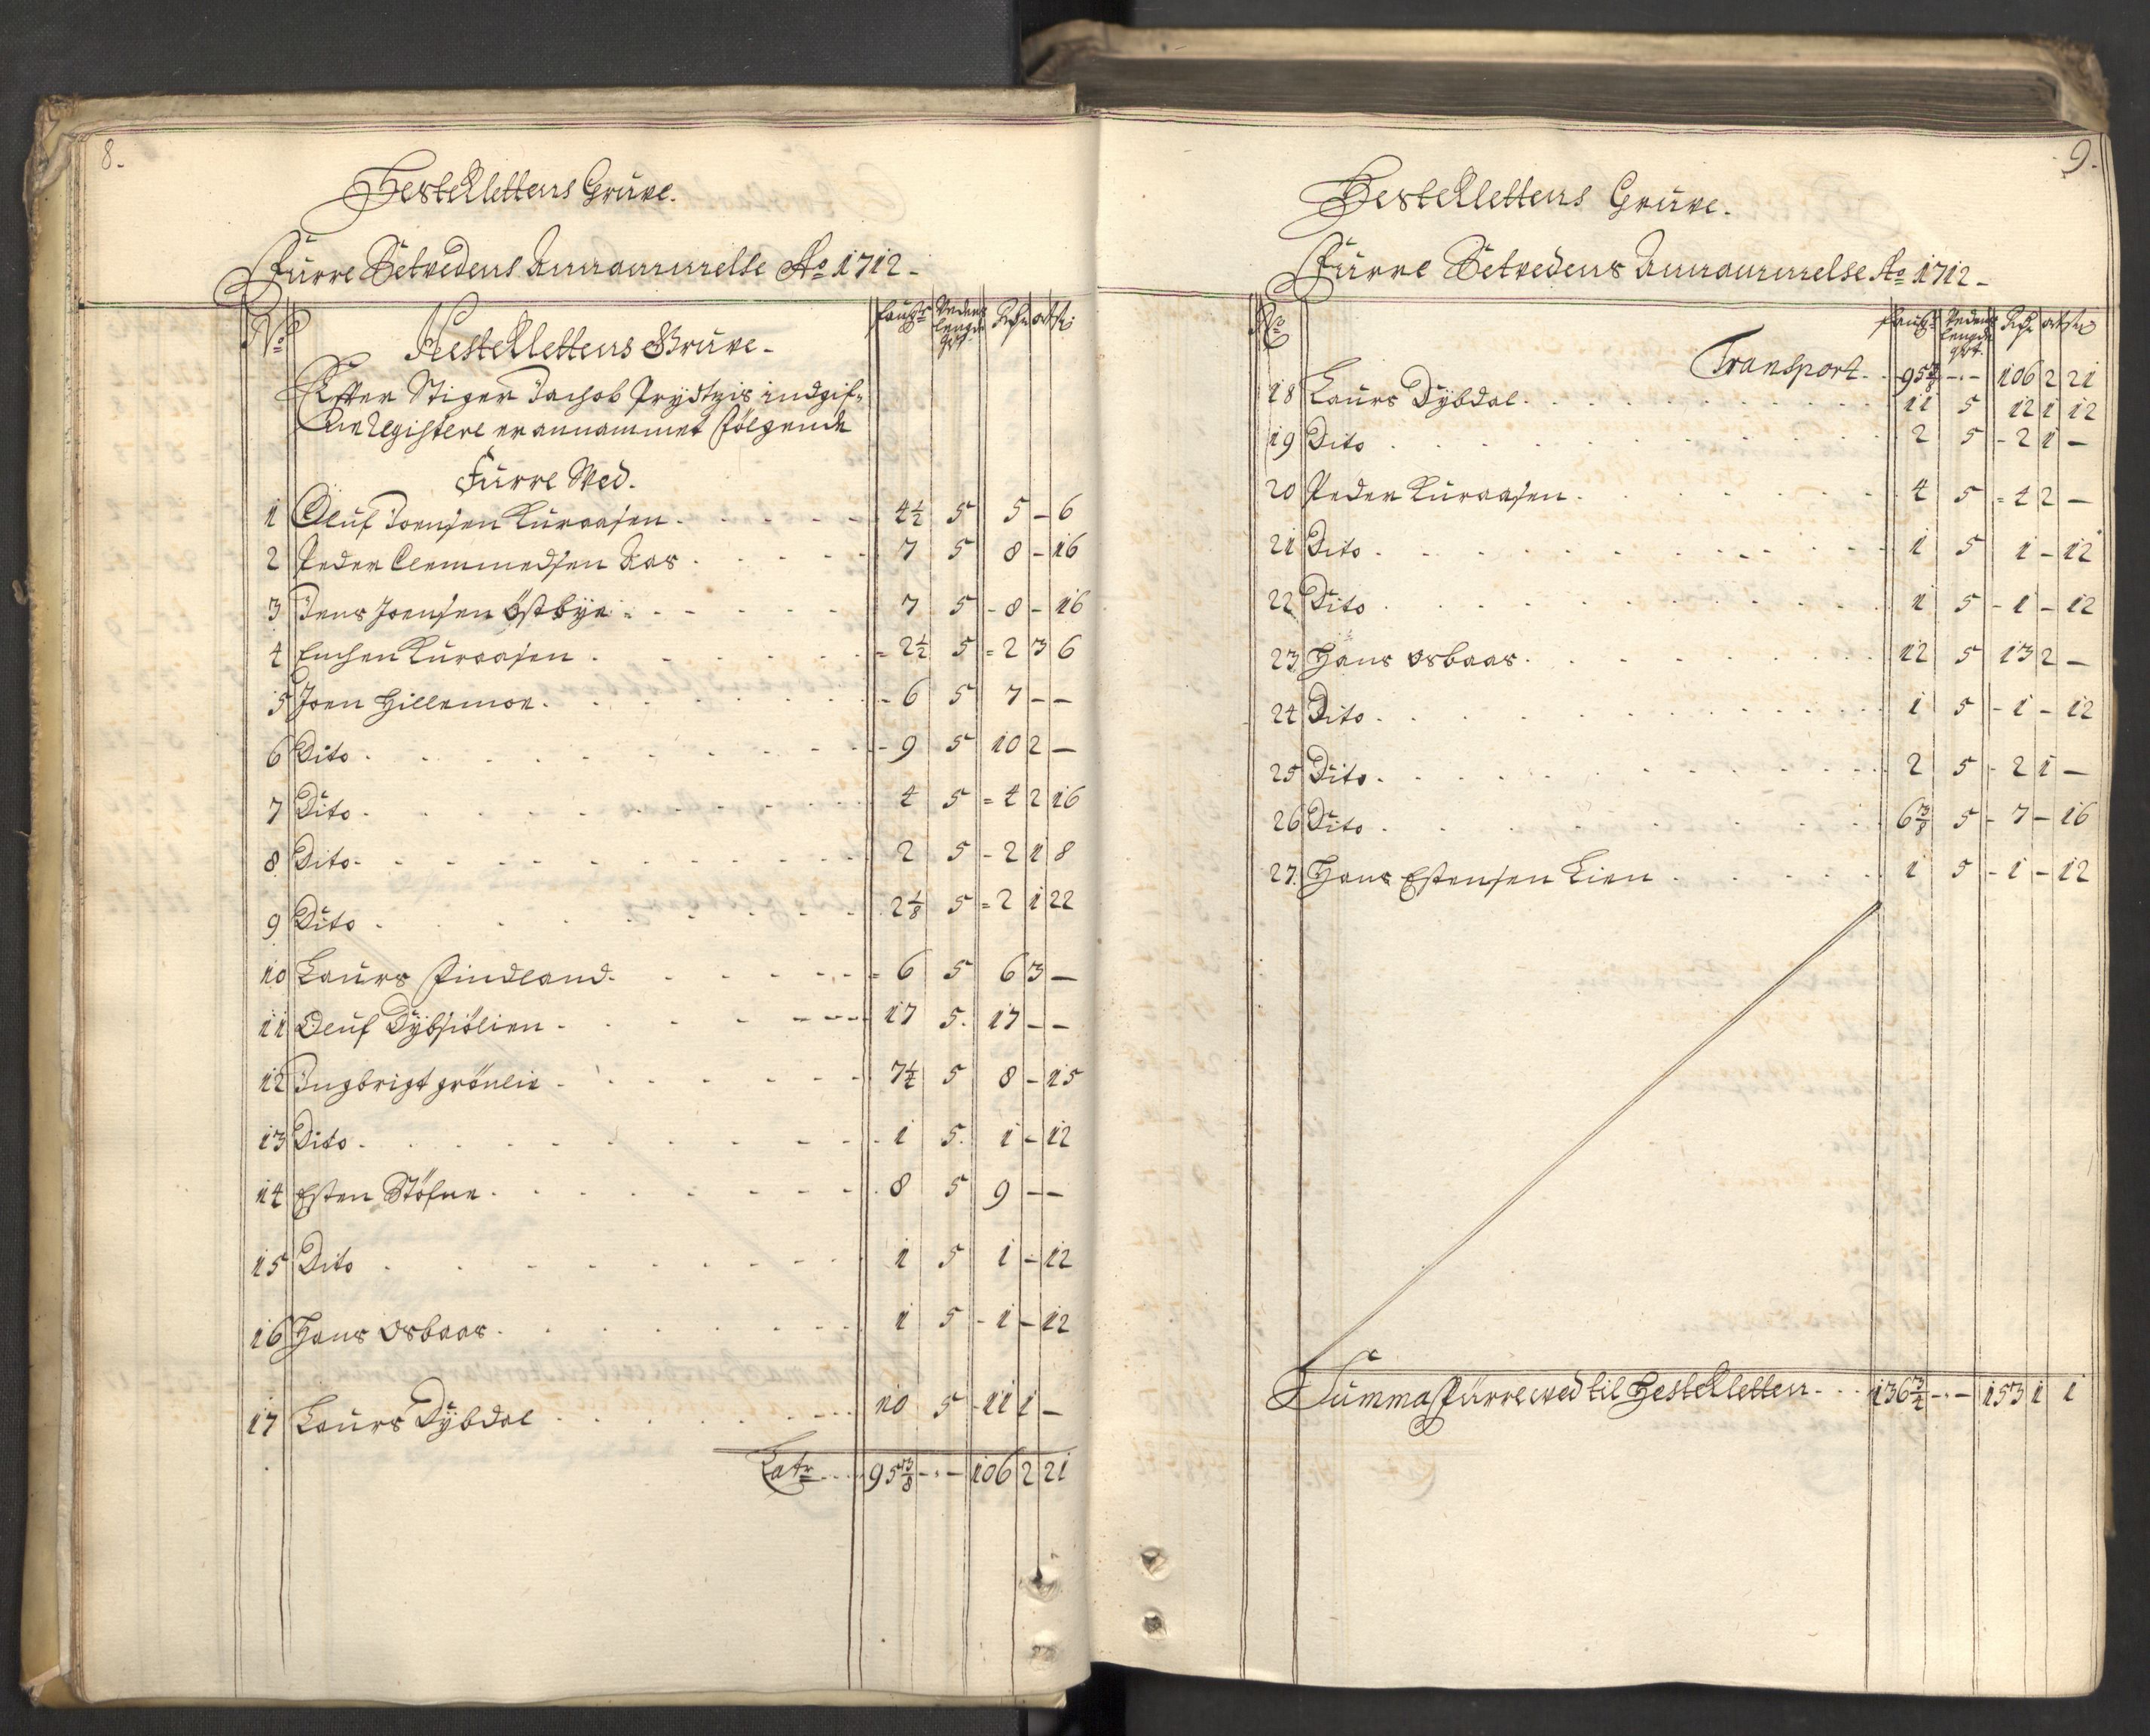 8.
Hestekletteus Gruve.
Furre Setvedens Annammelse Ao 1712
No
faufr
Vedens lengde qrt.
Rdr ort s:
Hestekletteus Gruve
Efter Stiger Jachob Prydtzis indgif-
ne Registere er annammet følgende
Furre Wed.
1 Oluf Joensen Kuraasen . . . 4½ 5 5 – 6
2 Peder Clemmedsen Aas . . . 7 5 8 – 16
3 Jens Joensen Østbye . . . 7 5 8 – 16
4 Kuraasen . . . 2½ 5 2 3 6
5 Joen Hillemoe . . . 6 5 7 – –
6 Dito . . . 9 5 10 2 –
7 Dito . . . 4 5 4 2 16
8 Dito . . . 2 5 2 1 8
9 Dito . . . 2⅛ 5 2 1 22
10 Laurs Findland . . . 6 5 6 3 –
11 Oluf Dybsiølien . . . 17 5 17 – –
12 Ingbrigt grønlie . . . 7¼ 5 8 – 15
13 Dito . . . 1 5 1 – 12
14 Esten Støfne . . . 8 5 9 – –
15 Dito . . . 1 5 1 – 12
16 Hans Osbaas . . . 1 5 1 – 12
17 Laurs Dybdal . . . 10 5 11 1 –
Latr . . . 95⅜ – – 106 2 21
9.
Hestekletteus Gruve.
Furre Setvedens Annammelse Ao 1712
No
faufr
Vedens lengde qrt.
Rdr ort s:
Transport . . 95⅜ – – 106 2 21
18 Laurs Dybdal . . . 11 5 12 1 12
19 Dito . . . 2 5 2 1 –
20 Peder Kuraasen . . . 4 5 4 2 –
21 Dito . . . 1 5 1 – 12
22 Dito . . . 1 5 1 – 12
23 Hans Osbaas . . . 12 5 13 2 –
24 Dito . . . 1 5 1 – 12
25 Dito . . . 2 5 2 1 –
26 Dito . . . 6⅜ 5 7 – 16
27 Hans Estensen Lien . . . 1 5 1 – 12
Summa furrewed til Hestekletten . . . 136¾ – – 153 1 1